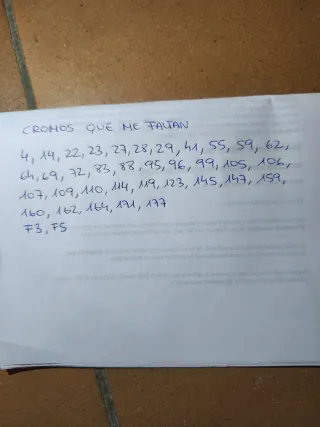 CROMOS QUE ME FALTAN
4, 14, 22, 23, 27, 28, 29, 41, 55, 59, 62,
64, 69, 72, 83, 88, 95, 96, 99, 105, 106,
107, 109, 110, 114, 119, 123, 145, 147, 159,
160, 162, 164, 171, 177
F3, F5